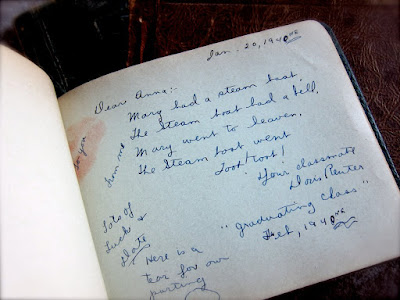 Jan. 20, 1940
Dear Anna:-
Mary had a steam boat,
The Steam boat had a bell,
Mary went to heaven,
The Steam boat went
Toot! toot!
Your classmate
"graduating class"
Feb, 1940
from me to you
Lots of
Luck &
Here is a
tear for our
parting